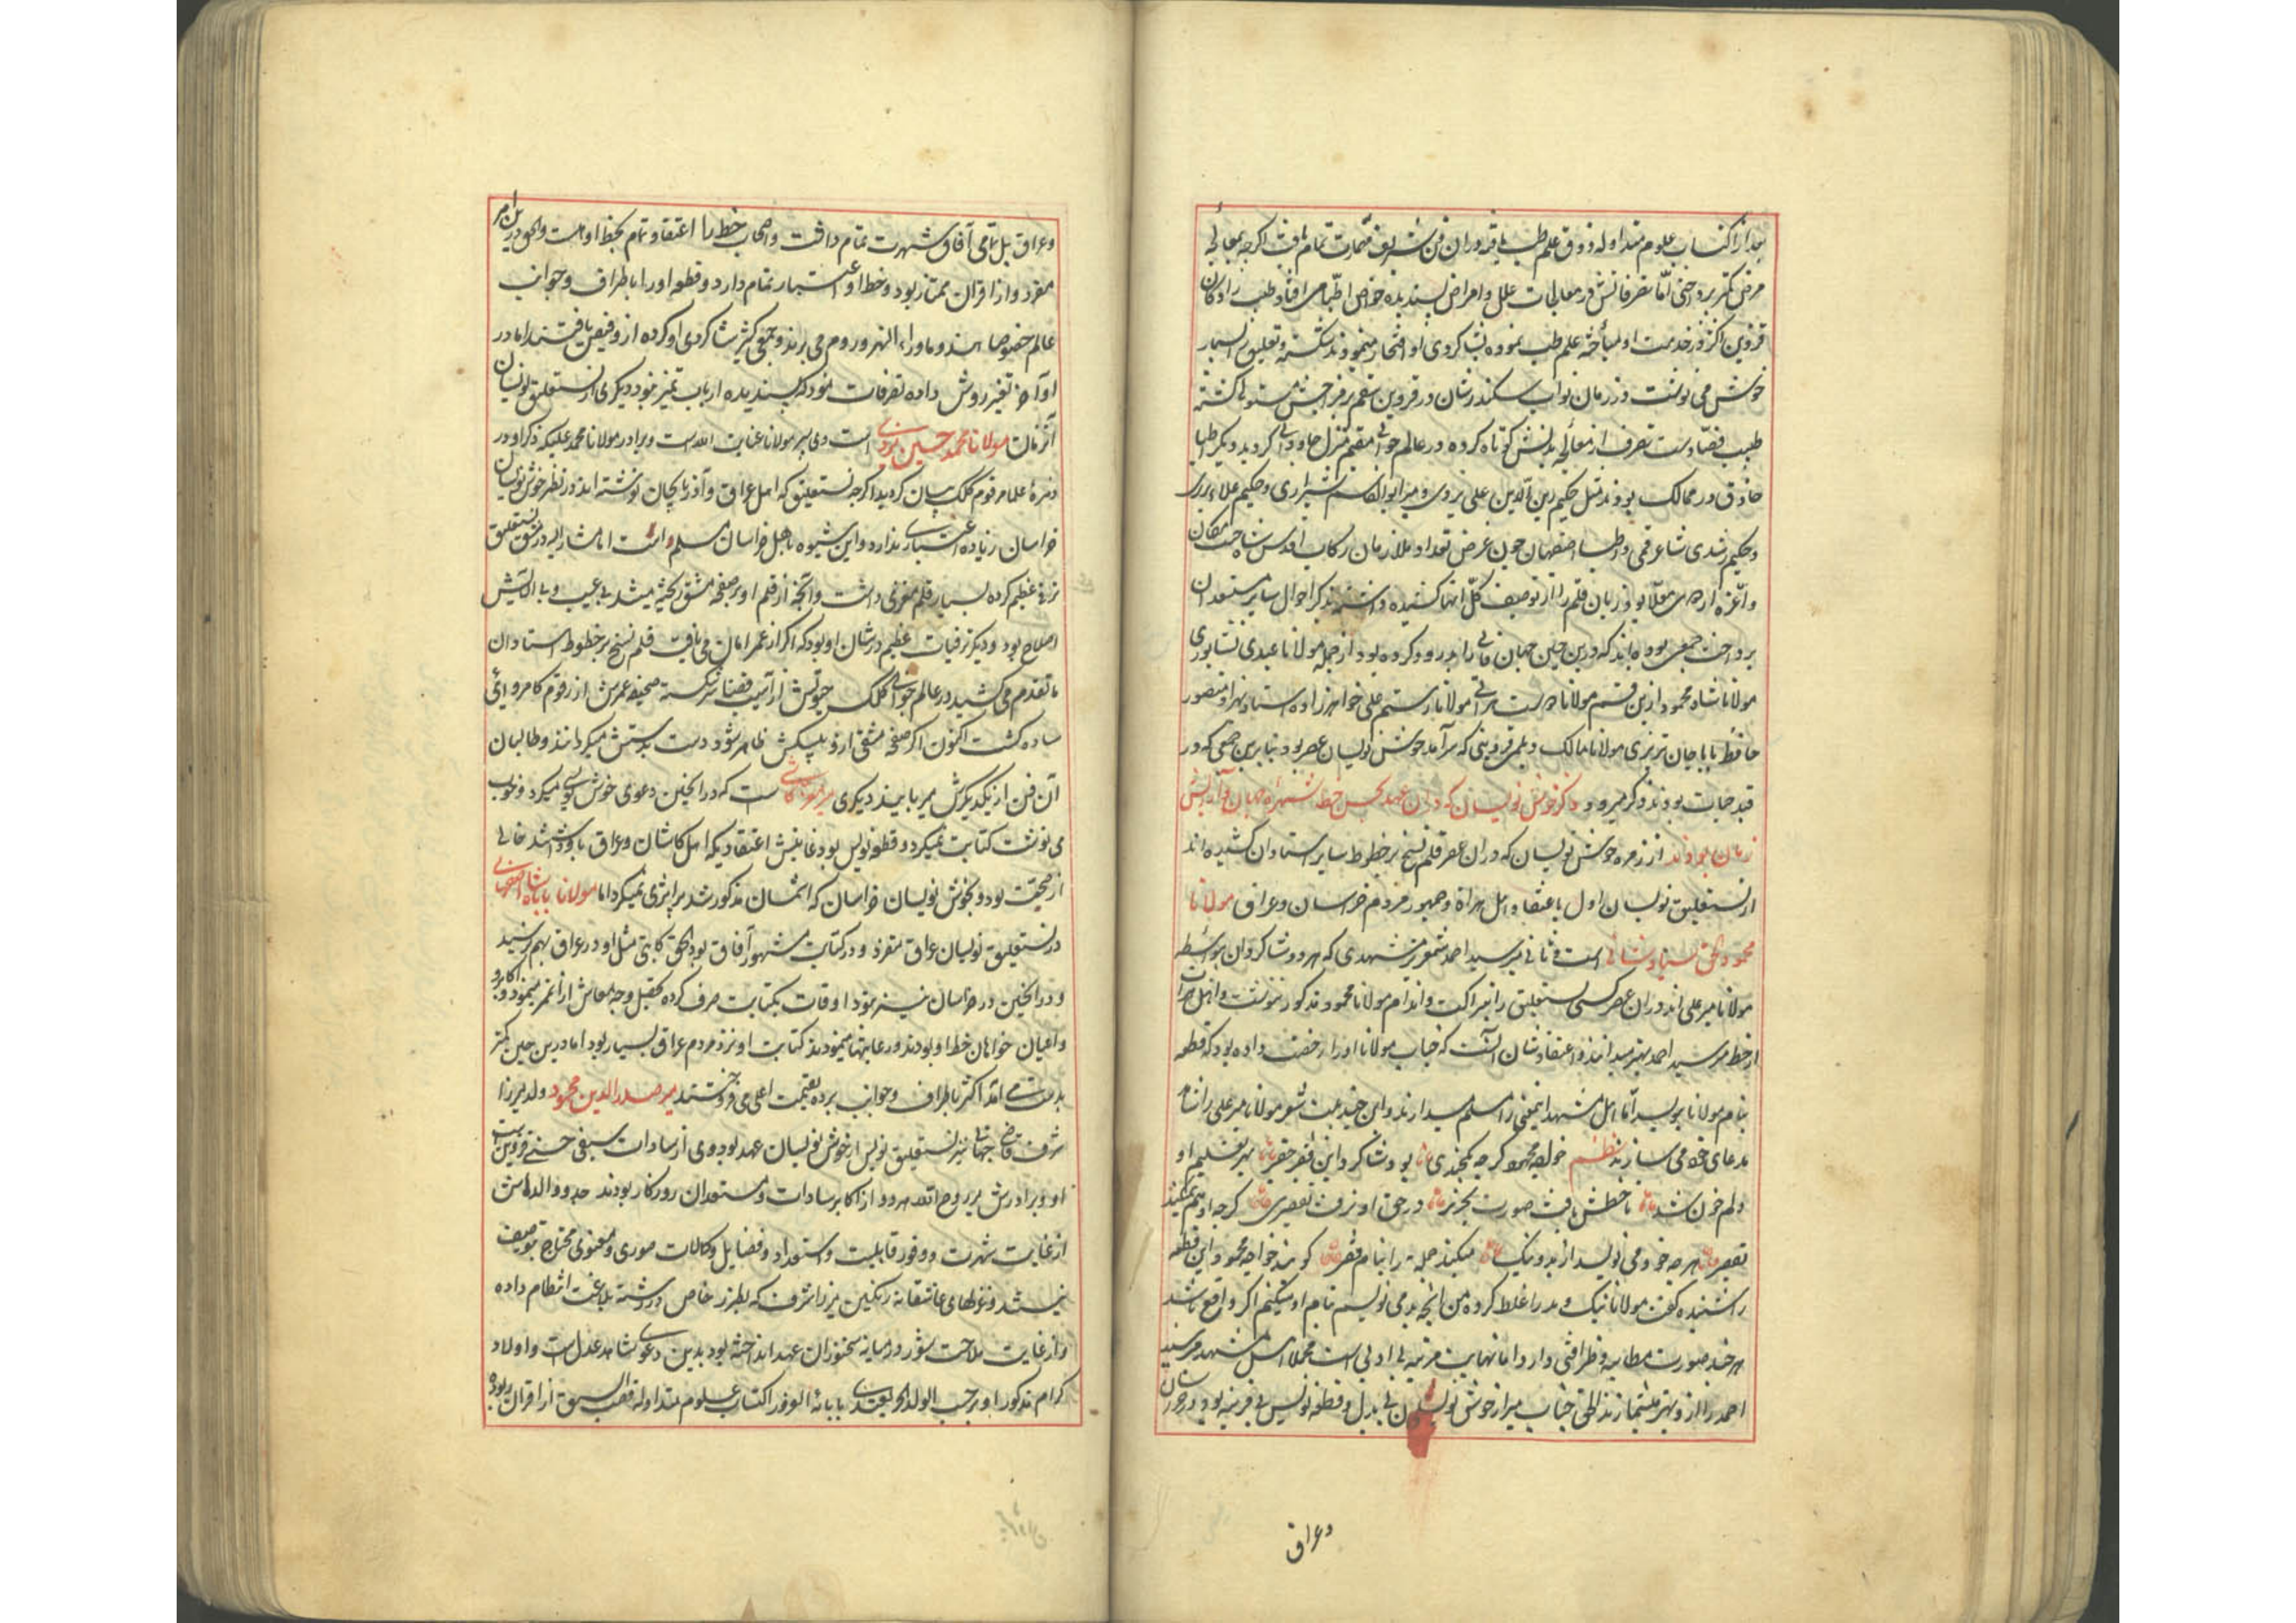 بعد از اکتساب علوم متداوله ذوق علم طب یافته در آن فن شریف مهارت تمام یافت اگرچه بمعالجه
مرض کمتر پرداختی اما تصرفاتش در معالجات علل و امراض پسندیده خواص اطبا می افتاد طبیب زادکان
قزوین اکثر در خدمت او مباحثه علم طب نموده بشاکردی او افتخار مینمودند شکسته و تعلیق بسیار
خوش می نوشت در زمان نواب سکندرشان در قزوین سقم بر مزاجش مستولی کشته
طبیب قضا دست تصرف از معالجه بدنش کوتاه کرده در عالم جوانی مقیم منزل جاودانی کردید دیکر اطبا
حاذق در ممالک بودند مثل حکیم زین الدین علی یزدی و میر ابوالقاسم شیرازی و حکیم علاء بزری
و حکیم رشدی شاعر قمی و اطباء اصفهان چون غرض تعداد ملازمان رکاب اقدس شاه جنت مکان
و اعزه اردوی معلا بود زبان قلم را از توصیف کل آنها کشیده داشته بذکر احوال سایر مستعدان
پرداخت جمعی بوده اند که درین حین جهان فانی را بدرود کرده بود از جمله مولانا عبدی نشابوری
مولانا شاه محمود ازین قسم مولانا دوست هراتی مولانا رستم علی خواهرزاده استاد بهزاد منصور
حافظ بابا جان تربتی مولانا مالک دیلمی قزوینی که سرآمد خوش نویسان عصر بود بنابرین جمعی که در
قید حیات بودند ذکر میرود ذکر خوش نویسان که در آن عهد بحسن خط شهره جهان و آرایش
زمان بوده اند از زمره خوش نویسان که در آن عصر قلم نسخ بر خطوط سایر استادان کشیده اند
از نستعلیق نویسان اول باعتقاد اهل هراة و جمهور مردم خراسان و عراق مولانا
محمود اسحق سیاوشانی است و ثانی میر سید احمد شمع ریز مشهدی که هر دو شاکردان بواسطه
مولانا میر علی اند در آن عصر کسی نستعلیق را بنزاکت و اندام مولانا محمود مذکور ننوشت و اهل هرات
از خط میر سید احمد بهتر میدانند و اعتقاد شان آنست که جناب مولانا او را رخصت داده بود که قطعه
بنام مولانا بنویسد اما اهل مشهد اینمعنی را مسلم نمیدارند و این چند بیت شعر مولانا میر علی را شاهد
مدعای خود می سازند نظم خواجه محمود کرچه یکچندی بود شاکرد این فقیر حقیر بهر تعلیم او
دلم خون شد تا خطش یافت صورت تحریر در حق او نرفت تقصیری کرچه او هم نمیکند
تقصیر هر چه خود می نویسد از بد و نیک میکند جمله را بنام فقیر کویند خواجه محمود این قطعه
را شنیده کفت مولانا نیک و بد را غلط کرده من آنچه بد می نویسم بنام او میکنم اکر واقع باشد
هر چند بصورت مطایبه و ظرافتی دارد اما نهایت مرتبه بی ادبی است مجملا اهل مشهد میر سید
احمد را ازو بهتر میشمارند الحق جناب میر از خوش نویسان بی بدل و قطعه نویس بی قرینه بود در خراسان
وعراق
وعراق بل تمامی آفاق شهرت تمام داشت و اصحاب خط را اعتقاد تمام بخط او هست و الحق در این امر
مفرد و از اقران ممتاز بود و خط او اشتهار تمام دارد و قطعه او را باطراف و جوانب
عالم خصوصا هند و ماوراء النهر و روم می برند و جمعی کثیر شاکردی او کرده از و فیض یافتند اما در
اواخر تغییر روش داده تصرفات نمود که پسندیده ارباب تمیز نبود دیکری از نستعلیق نویسان
آنزمان مولانا محمد حسین تبریزی است وی پسر مولانا عنایت الله است و برادر مولانا محمد علیکه ذکر او در
زمره علما مرقوم کلک بیان کردید اکرچه نستعلیق که اهل عراق و آذربایجان نوشته اند در نظر خوش نویسان
خراسان زیاده اعتباری ندارد و این شیوه باهل خراسان مسلم است اما مشار الیه در مشق نستعلیق
ترقی عظیم کرده بسیار قلم مغزی داشت و آنچه از قلم او بر صفحه مشق ریخته میشد بی عیب و بی آلایش
اصلاح بود و دیکر ترقیات عظیم در شان او بود که اکر از عمر امان می یافت قلم نسخ بر خطوط استادان
ما تقدم می کشید در عالم جوانی کلک حیوتش از آسیب قضا شکسته صحیفه عمرش از رقوم کامروائی
ساده کشت اکنون اکر صفحه مشقی ازو پیشکش ظاهر شود دست بدستش میکردانند و طالبان
آن فن از یکدیکرش میربایند دیکری میر معز کاشی است که در آنحین دعوی خوش نویسی میکرد و خوب
می نوشت کتابت نمیکرد و قطعه نویس بود غایتش اعتقادیکه اهل کاشان و عراق باو داشتند خالی
از حجت بود و بخوش نویسان خراسان که اسمشان مذکور شد برابری نمیکرد اما مولانا بابا شاه اصفهانی
در نستعلیق نویسان عراق متفرد و در کتابت مشهور آفاق بود الحق کاتبی مثل او در عراق بهم نرسید
و در آنحین در خراسان نیز نبود اوقات بکتابت صرف کرده تحصیل وجه معاش از آن ممر مینمود و اکابر
و اعیان خواهان خط او بودند و رعایتها مینمودند کتابت او نزد مردم عراق بسیار بود اما درین حین کمتر
بدست می آمد اکثر باطراف و جوانب برده بقیمت اعلی می فروختند میر صدر الدین محمد ولد میرزا
شرف قاضی جهانی نیز نستعلیق نویس از خوش نویسان عهد بود وی از سادات سیفی حسنی قزوین است
او و برادرش میر روح الله هر دو از اکابر سادات و مستعدان روزکار بودند جد و والد ماجدش
از غایت شهرت و وفور قابلیت و استعداد و فضایل و کمالات صوری و معنوی محتاج توصیف
نیستند و غزلهای عاشقانه رنکین میرزا شرف که بطرز خاص در رشته بلاغت انتظام داده
و از غایت ملاحت شور در میانه سخنوران عهد انداخته بود بدین دعوی شاهد عدل است و اولاد
کرام مذکور او بر حسب الولد الحر یقتدی بابائه الغر در اکتساب علوم متداوله قصب السبق از اقران ربوده